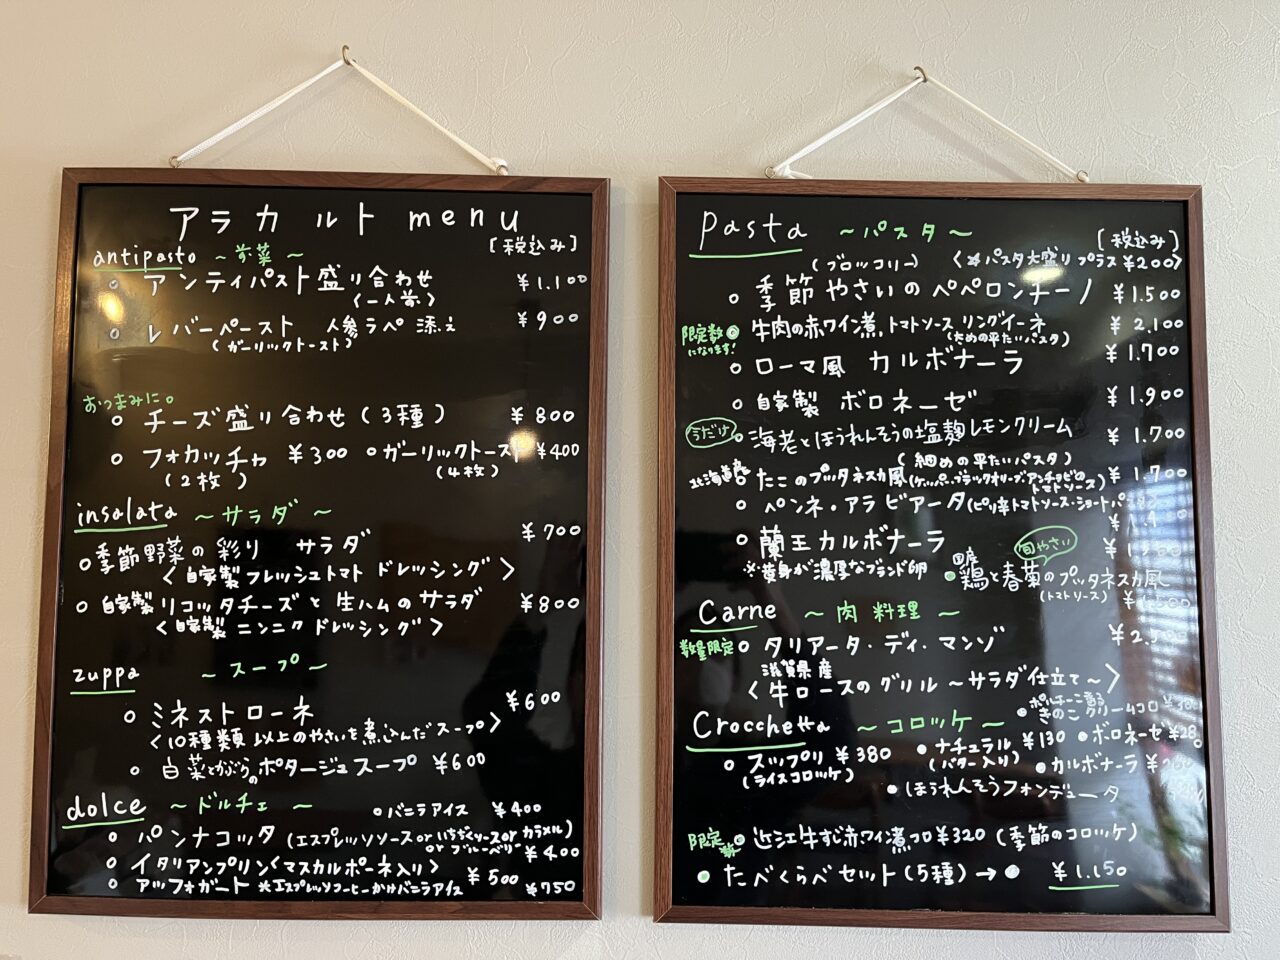 アラカルト menu
antipasto ~前菜~ [税込み]
アンティパスト盛り合わせ ¥1.100
(一人前)
レバーペースト 人参ラペ 添え ¥900
(ガーリックトースト)
おつまみに。
チーズ盛り合わせ (3種) ¥800
フォカッチャ ¥300 ガーリックトースト ¥400
(2枚) (4枚)
insalata ~サラダ~
季節野菜の彩り サラダ ¥700
<自家製フレッシュトマト ドレッシング>
自家製リコッタチーズと生ハムのサラダ ¥800
<自家製 ニンニクドレッシング>
zuppa ~スープ~
ミネストローネ ¥600
<10種類以上のやさいを煮込んだスープ>
白菜とかぶらのポタージュスープ ¥600
dolce ~ドルチェ~ バニラアイス ¥400
パンナコッタ (エスプレッソソースorいちぢくソースorカラメル)
orブルーベリー ¥400
イタリアンプリン<マスカルポーネ入り> ¥500
アッフォガート ※エスプレッソコーヒーかけバニラアイス ¥750
Pasta ~パスタ~ [税込み]
(ブロッコリー) <※パスタ大盛りプラス¥200>
季節やさいのペペロンチーノ ¥1.500
限定数になります! 牛肉の赤ワイン煮トマトソースリングイーネ ¥2.100
(ための平たいパスタ)
ローマ風 カルボナーラ ¥1.700
自家製 ボロネーゼ ¥1.900
今だけ 海老とほうれんそうの塩麹レモンクリーム ¥1.700
(細めの平たいパスタ)
北海道産 たこのプッタネスカ風(ケッパー、ブラックオリーブ・アンチョビのトマトソース) ¥1.700
ペンネ・アラビアータ(ピリ辛トマトソース・ショートパスタ)
蘭王カルボナーラ
※黄身が濃厚なブランド卵
旬やさい
国産鶏と春菊のプッタネスカ風
(トマトソース)
Carne ~肉料理~
数量限定 タリアータ・ディ・マンゾ
滋賀県産
<牛ロースのグリル ~サラダ仕立て~>
ポルチーニ香る
きのこクリームコロ
Crocchetta ~コロッケ~
スップリ ¥380 ナチュラル ¥130 ボロネーゼ
(ライスコロッケ) (バター入り) カルボナーラ
ほうれんそうフォンデュータ
限定数 近江牛すじ赤ワイン煮コロ ¥320 (季節のコロッケ)
たべくらべセット(5種)→ ¥1.150